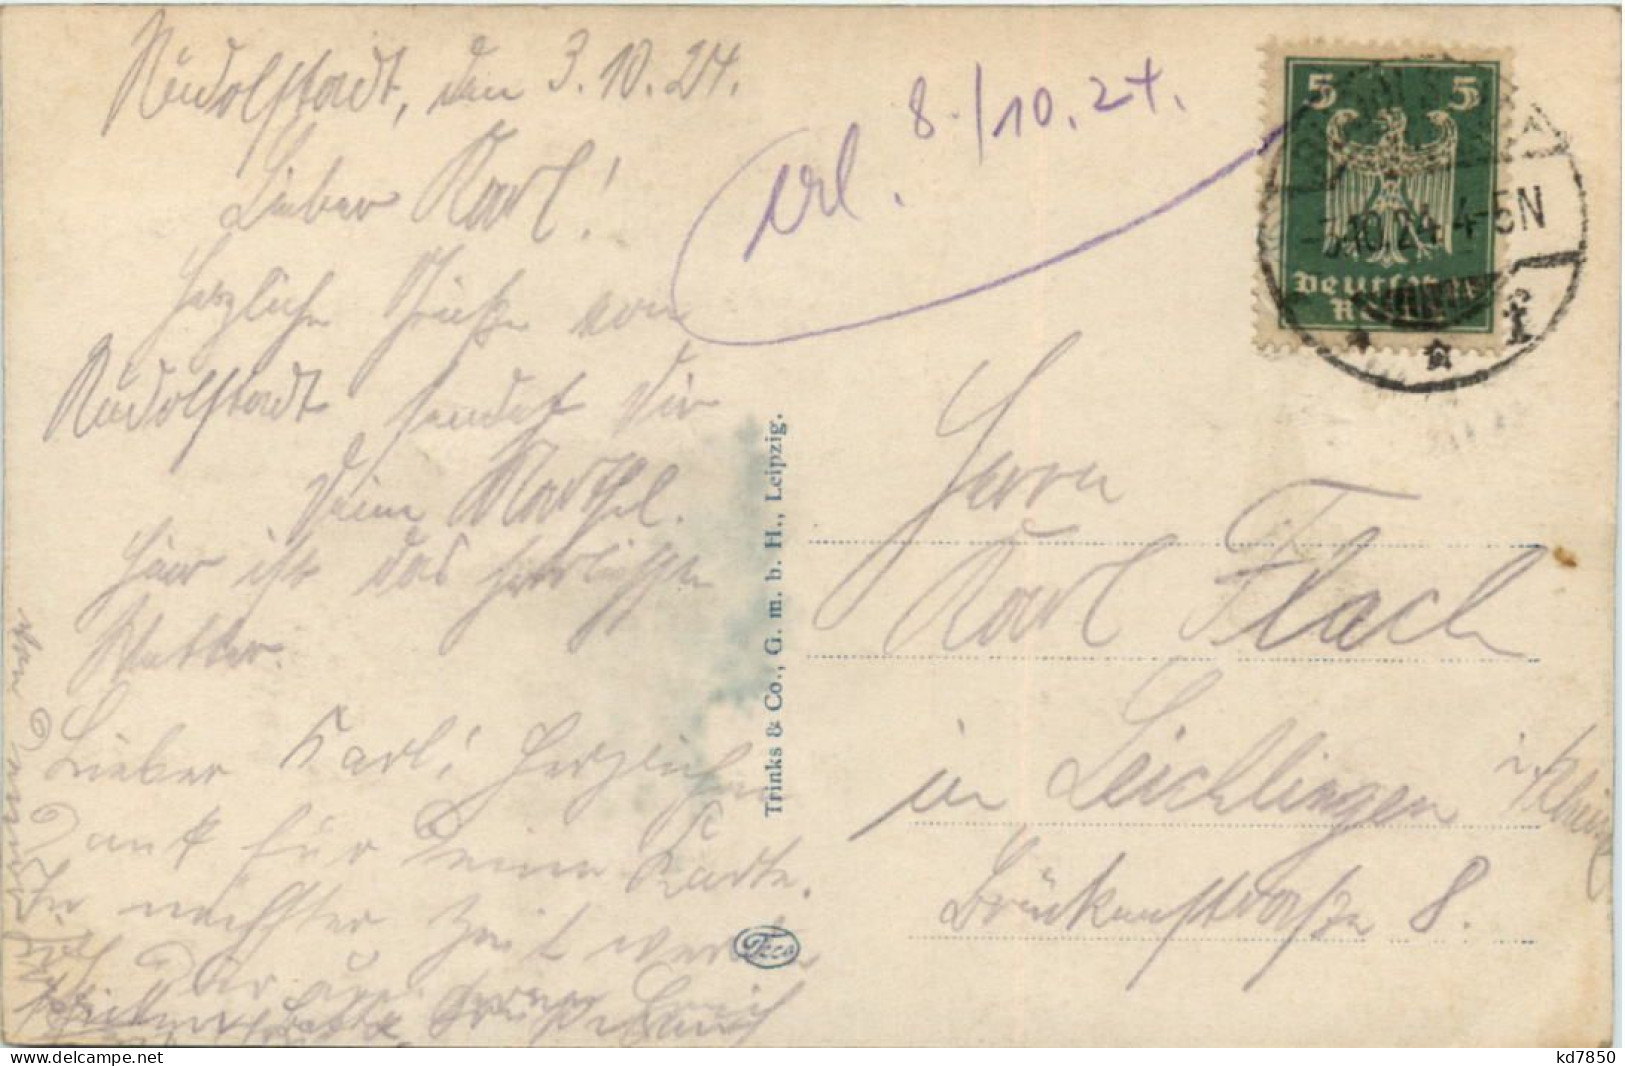 Rudolstadt, den 3.10.24.
Lieber Karl!
Herzliche Grüße von
Rudolstadt sendet Dir
Deine
Hier ist das herrlichste
Wetter.
Lieber Karl! Herzlichen
Dank für Deine Karte.
In nächster Zeit werde
ich Dir
erl. 8./10.24.
5 5
Deutsches
Reich
3.10.24. 4-5N
f
Herrn
Karl Flach
in Leichlingen i. Rheinl.
Brückenstraße 8.
Trinks & Co., G. m. b. H., Leipzig.
Teco
delcampe.net
kd7850